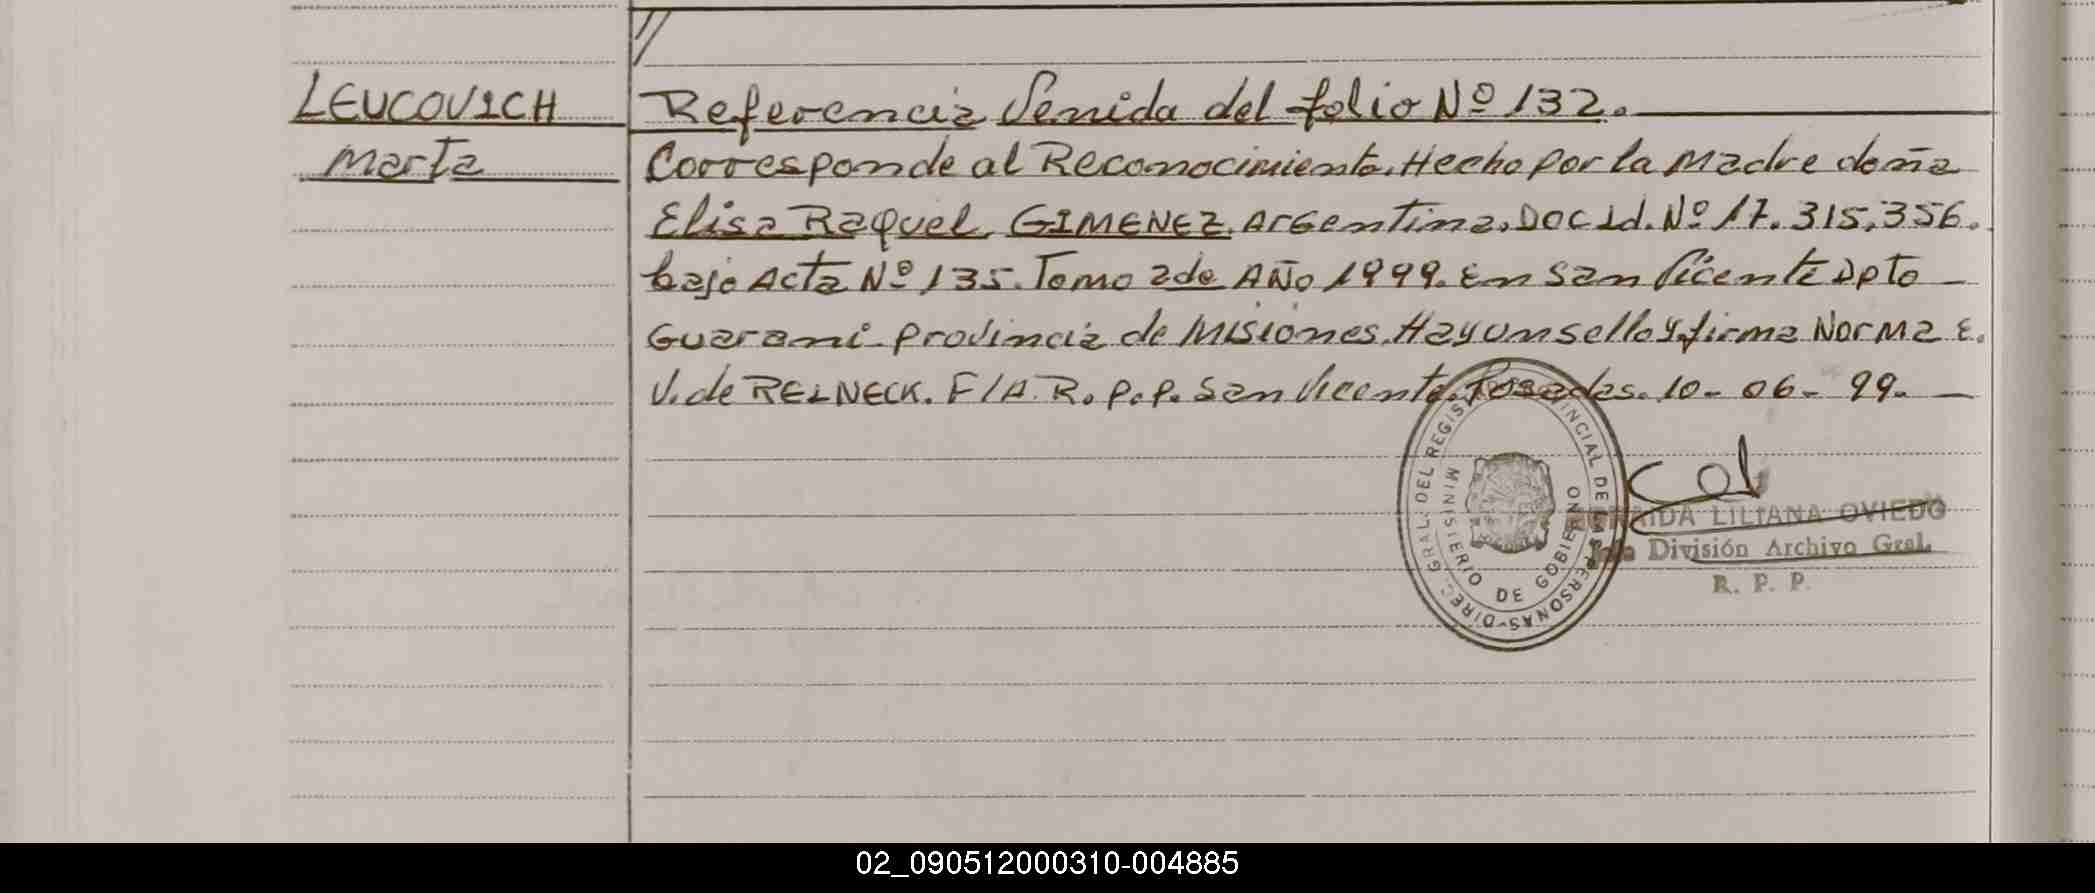 //
LEUCOVICH
Marta
Referencia Venida del folio Nº 132.
Corresponde al Reconocimiento. Hecho por la Madre doña
Elisa Raquel GIMENEZ. Argentina. Doc Id. Nº 17.315.356.
bajo Acta Nº 135. Tomo 2de Año 1999. En San Vicente Dpto
Guarani Provincia de Misiones. Hay un sello y firma Norma E.
V. de REINECK. F/A. R. P. P. San Vicente. Posadas. 10-06-99.
DIREC. GRAL. DEL REGIS PROVINCIAL DE LAS PERSONAS
MINISTERIO DE GOBIERNO
LILIANA OVIEDO
Jefa División Archivo Gral.
R. P. P.
02_090512000310-004885